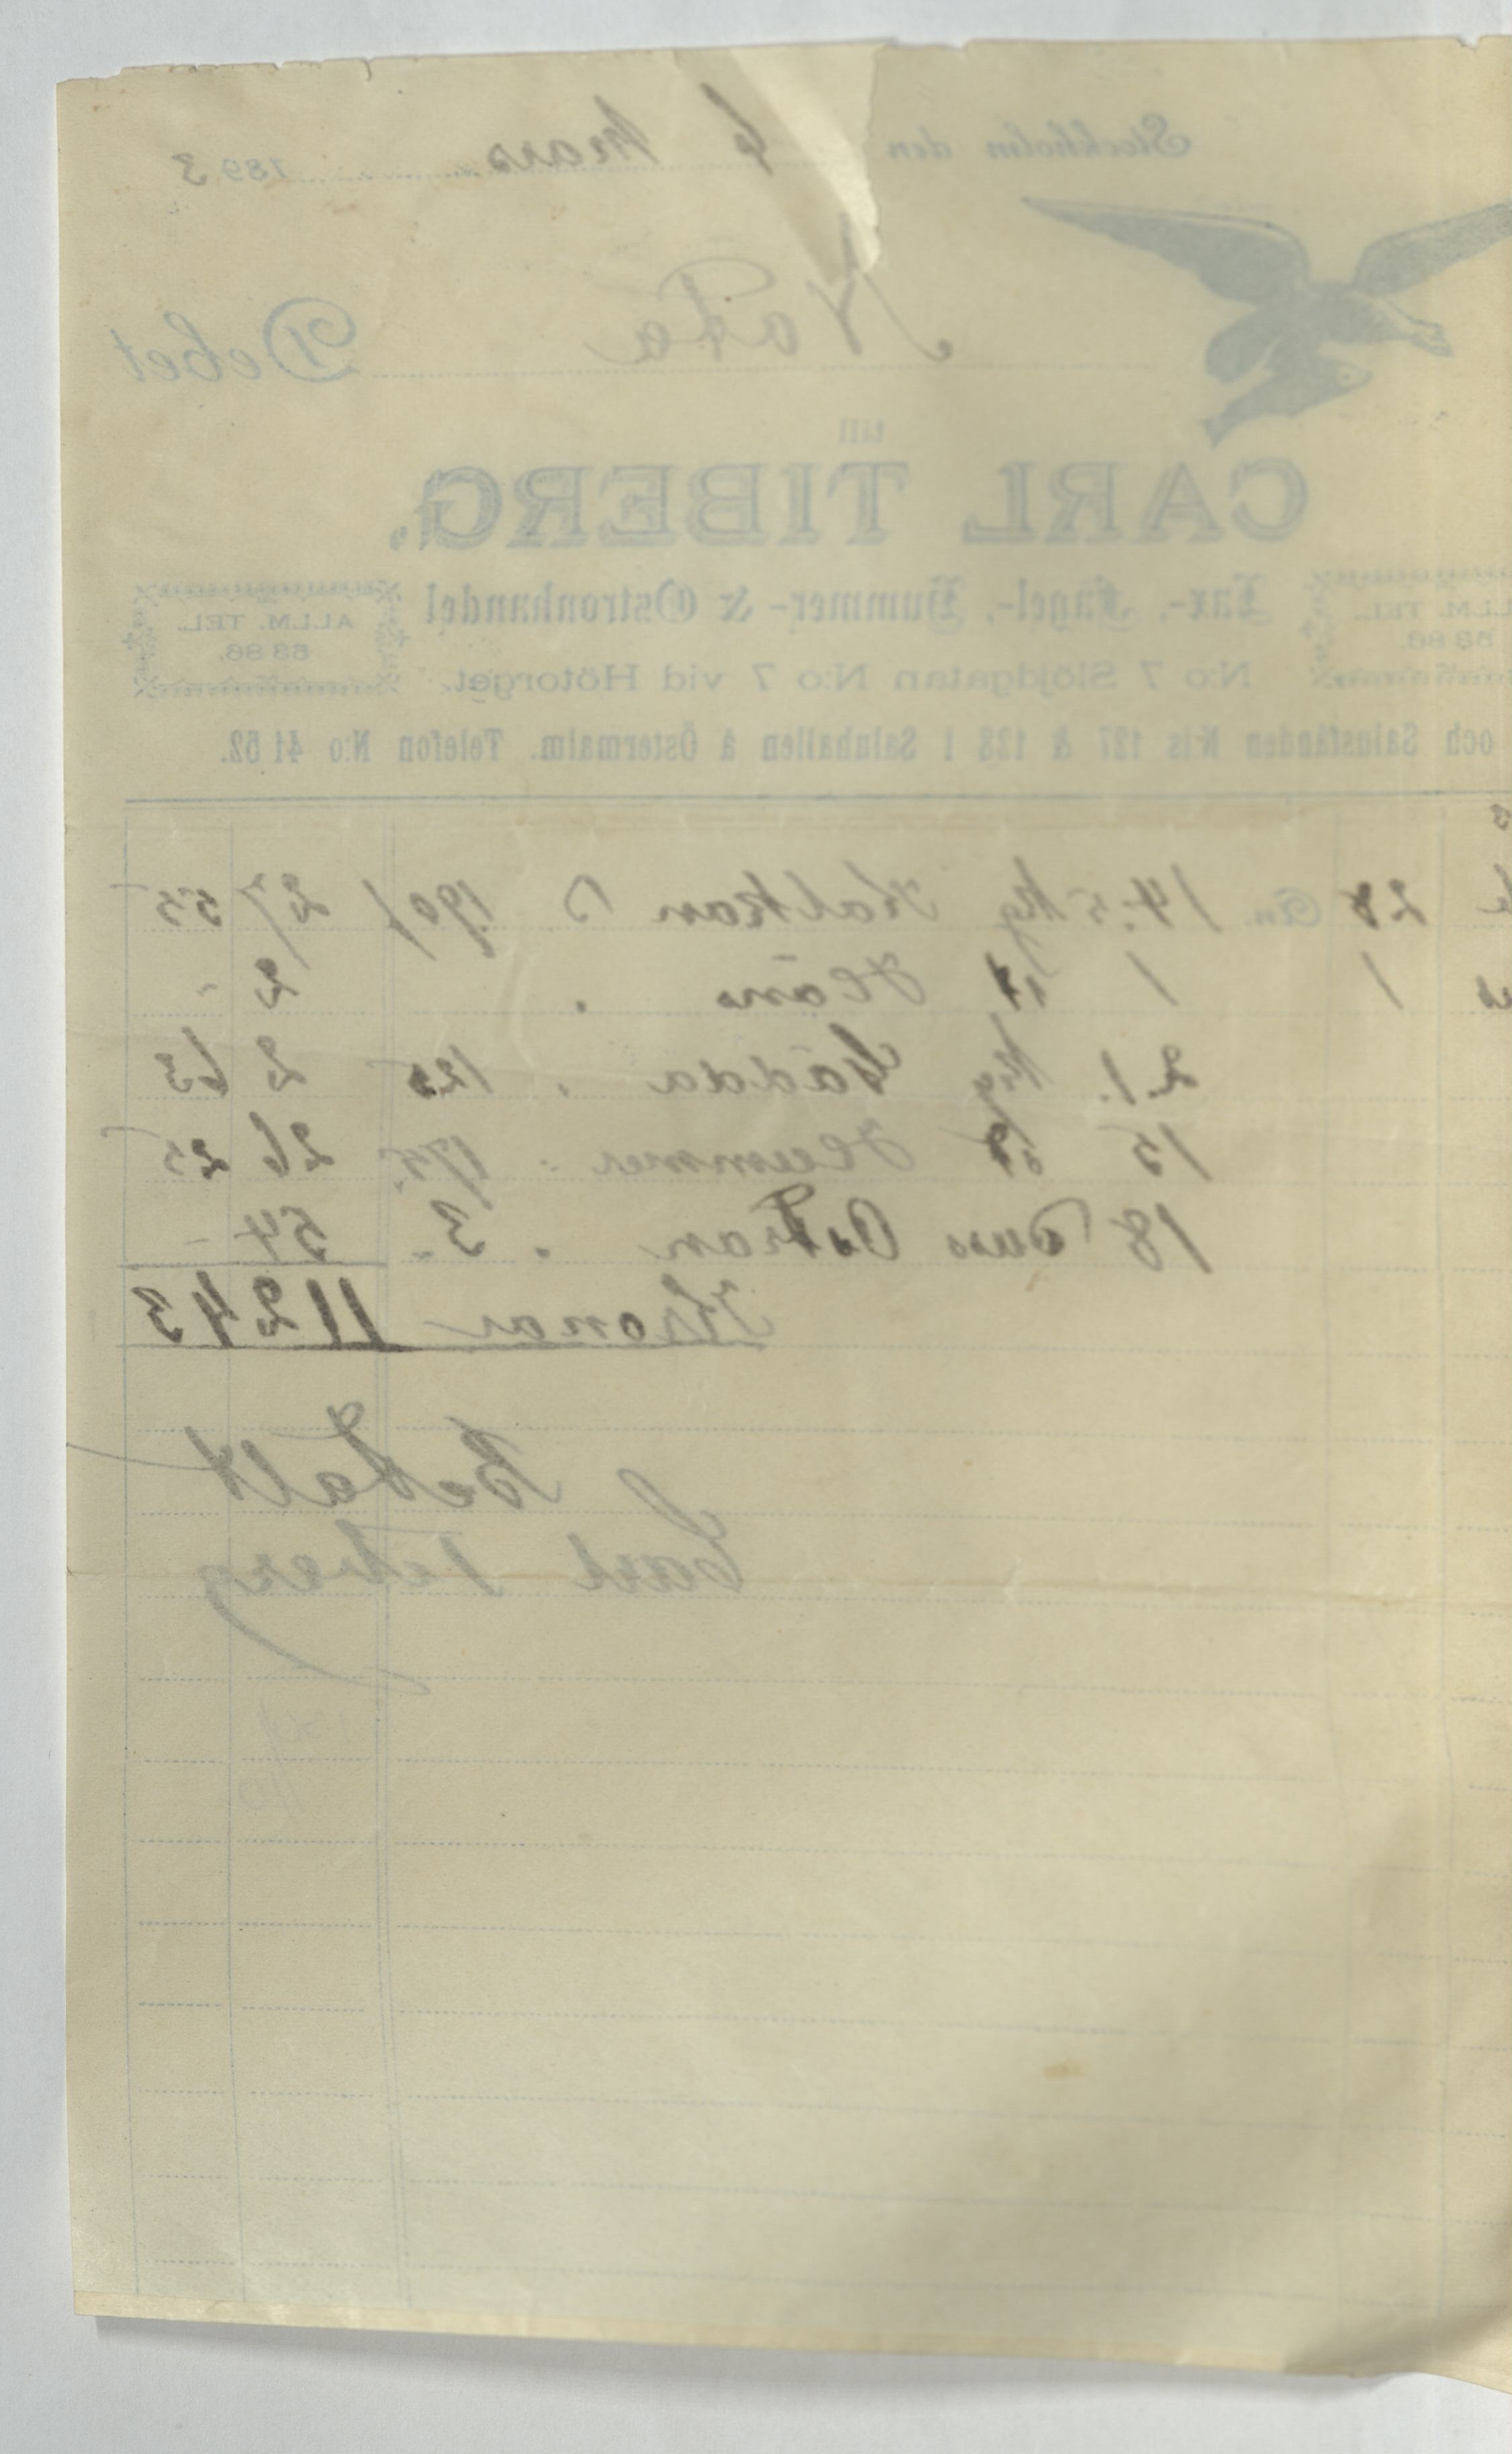 Stockholm den 6 Mars 1893
Nota Debet
till
CARL TIBERG.
Lax-, Fågel-, Hummer- & Ostronhandel
ALLM. TEL. 63 86.
ALLM. TEL. 63 86.
N:o 7 Slöjdgatan N:o 7 vid Hötorget.
och Saluständen N:is 127 & 128 i Saluhallen å Östermalm. Telefon N:o 41 62.
28 14.5 Kg Kalkon 190/ 27 55
1 1 st Höns 2 -
2.1 Kg Gädda 125 2 63
15 st Hummer 175 26 25
18 Duss Ostron 3 - 54 -
Kronor 112 43
Betalt
Carl Tiberg